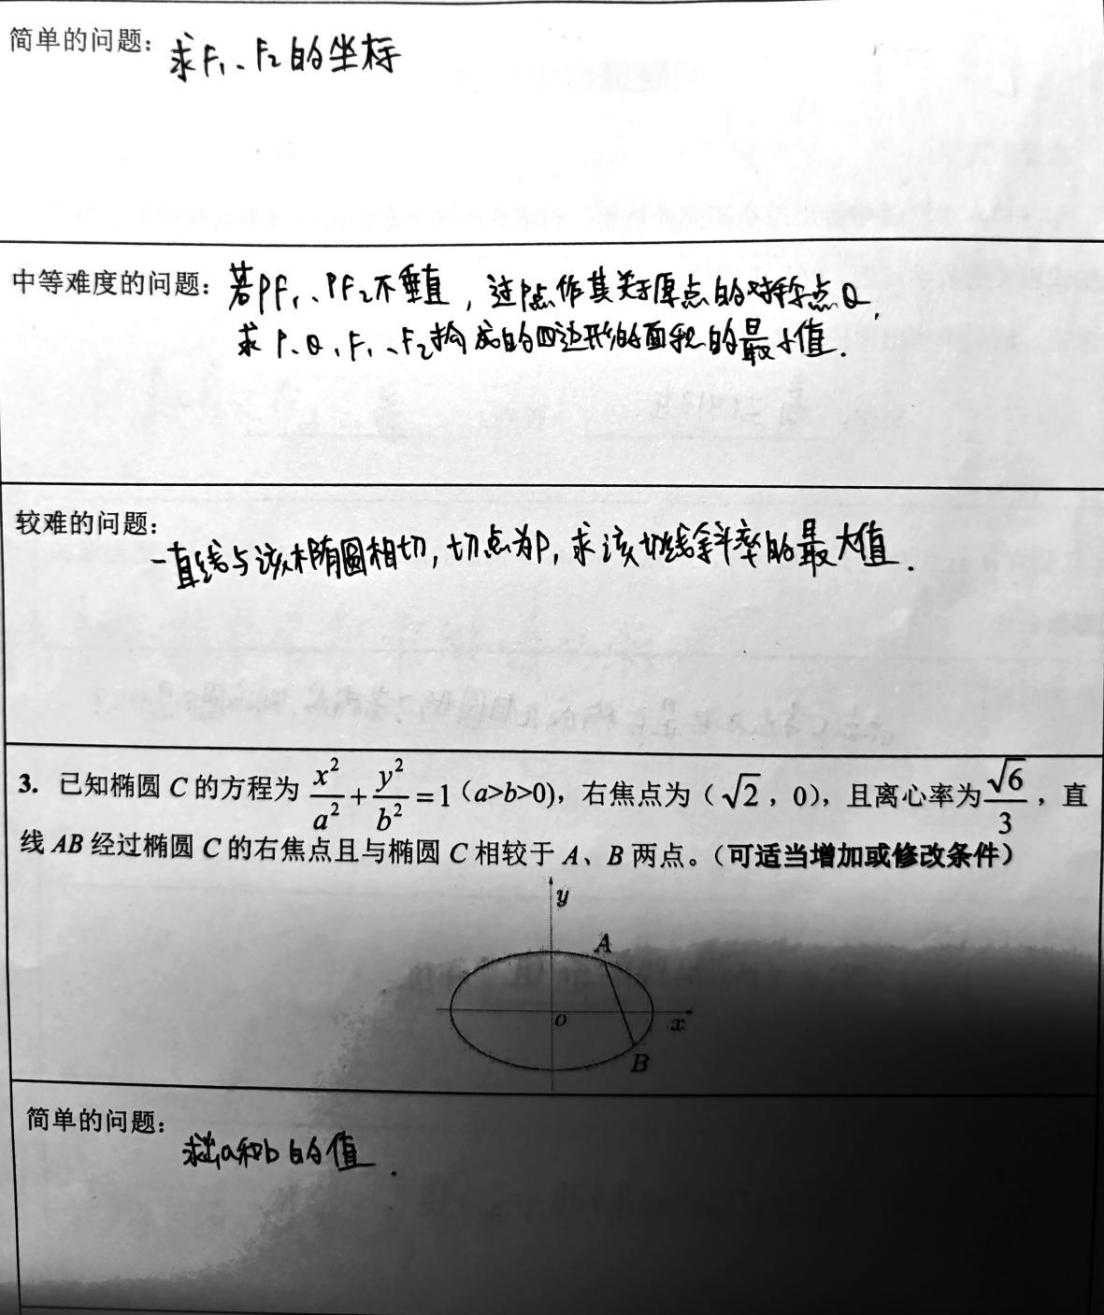 简单的问题：求F₁、F₂的坐标
中等难度的问题：若PF₁、PF₂不垂直，过P点作其关于原点的对称点Q，
求P、Q、F₁、F₂构成的四边形的面积的最大值．
较难的问题：
一直线与该椭圆相切，切点为P，求该切线斜率的最大值．
3. 已知椭圆 C 的方程为 x²/a² + y²/b² = 1（a>b>0），右焦点为（√2，0），且离心率为√6/3，直
线 AB 经过椭圆 C 的右焦点且与椭圆 C 相较于 A、B 两点。（可适当增加或修改条件）
y
A
O
x
B
简单的问题：
求出a和b的值．